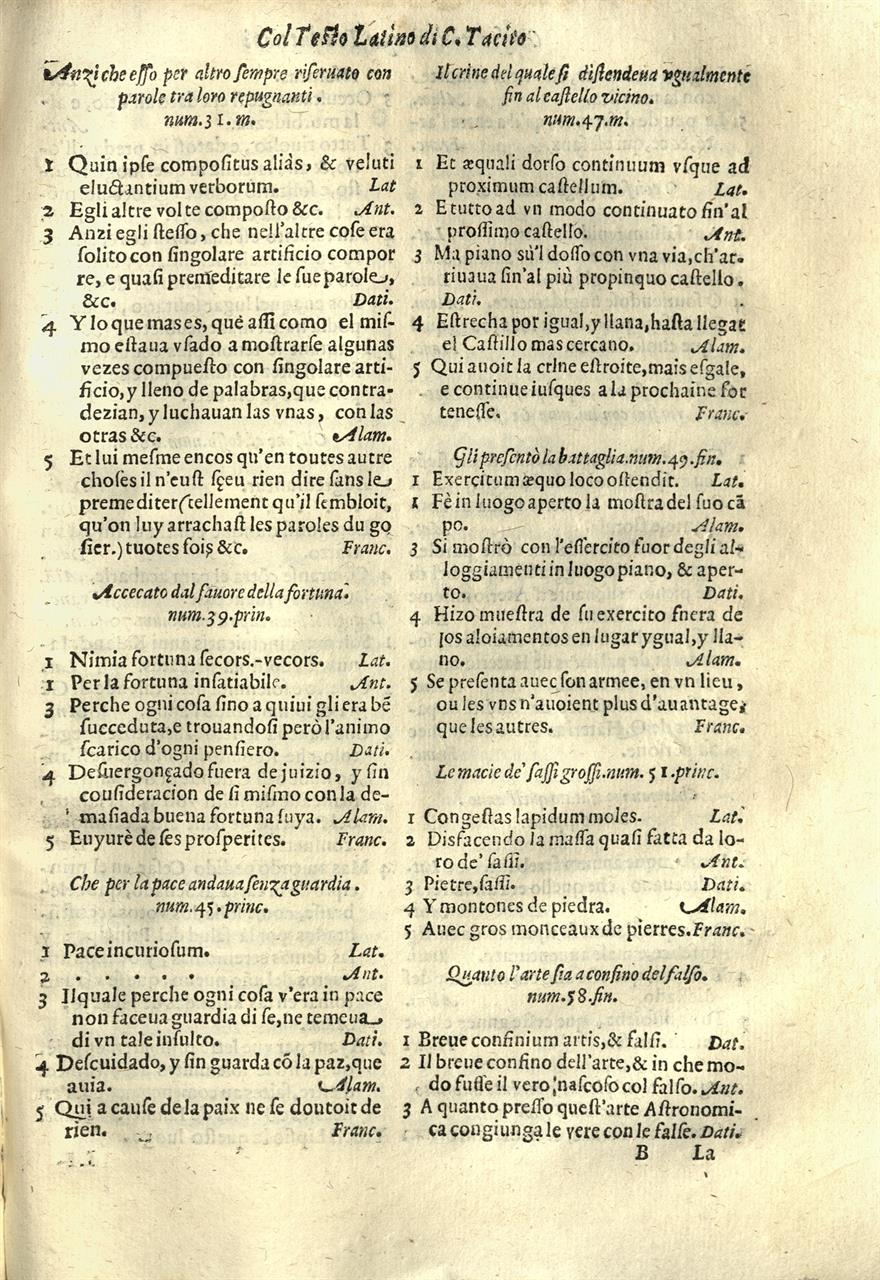 Col Testo Latino di C. Tacito
Anzi che esso per altro sempre riseruato con
parole tra loro repugnanti.
num.31.m.
1 Quin ipse compositus aliàs, & veluti
eluctantium verborum. Lat
2 Egli altre volte composto &c. Ant.
3 Anzi egli stesso, che nell'altre cose era
solito con singolare artificio compor
re, e quasi premeditare le sue parole,
&c. Dati.
4 Y lo que mas es, què assi como el mis-
mo estaua vsado a mostrarse algunas
vezes compuesto con singolare arti-
ficio, y lleno de palabras, que contra-
dezian, y luchauan las vnas, con las
otras &c. Alam.
5 Et lui mesme encos qu'en toutes autre
choses il n'eust sçeu rien dire sans le
premediter (tellement qu'il sembloit,
qu'on luy arrachast les paroles du go
sier.) tuotes fois &c. Franc.
Accecato dal fauore della fortuna.
num.39.prin.
1 Nimia fortuna secors.-vecors. Lat.
1 Per la fortuna insatiabile. Ant.
3 Perche ogni cosa sino a quiui gli era bē
succeduta, e trouandosi però l'animo
scarico d'ogni pensiero. Dati.
4 Desuergonçado fuera de juizio, y sin
cousideracion de si mismo con la de-
masiada buena fortuna suya. Alam.
5 Euyurè de ses prosperites. Franc.
Che per la pace andaua senza guardia.
num.45.princ.
1 Pace incuriosum. Lat.
2 . . . . . Ant.
3 Ilquale perche ogni cosa v'era in pace
non faceua guardia di se, ne temeua
di vn tale insulto. Dati.
4 Descuidado, y sin guarda cō la paz, que
auia. Alam.
5 Qui a cause de la paix ne se doutoit de
rien. Franc.
Il crine del quale si distendeua vgualmente
fin al castello vicino.
num.47.m.
1 Et æquali dorso continuum vsque ad
proximum castellum. Lat.
2 E tutto ad vn modo continuato sin'al
prossimo castello. Ant.
3 Ma piano sù'l dosso con vna via, ch'ar-
riuaua sin'al più propinquo castello.
Dati.
4 Estrecha por igual, y llana, hasta llegar
el Castillo mas cercano. Alam.
5 Qui auoit la crine estroite, mais esgale,
e continue iusques a la prochaine for
tenesse. Franc.
Gli presentò la battaglia.num.49.fin.
1 Exercitum æquo loco ostendit. Lat.
1 Fè in luogo aperto la mostra del suo cā
po. Alam.
3 Si mostrò con l'essercito fuor degli al-
loggiamenti in luogo piano, & aper-
to. Dati.
4 Hizo muestra de su exercito fnera de
los aloiamentos en lugar ygual, y lla-
no. Alam.
5 Se presenta auec son armee, en vn lieu,
ou les vns n'auoient plus d'auantage,
que les autres. Franc.
Le macie de' sassi grossi.num. 51.princ.
1 Congestas lapidum moles. Lat.
2 Disfacendo la massa quasi fatta da lo-
ro de' sassi. Ant.
3 Pietre, sassi. Dati.
4 Y montones de piedra. Alam.
5 Auec gros monceaux de pierres. Franc.
Quanto l'arte sia a confino del falso.
num.58.fin.
1 Breue confinium artis, & falsi. Dat.
2 Il breue confino dell'arte, & in che mo-
do fusse il vero nascoso col falso. Ant.
3 A quanto presso quest'arte Astronomi-
ca congiunga le vere con le false. Dati.
B La